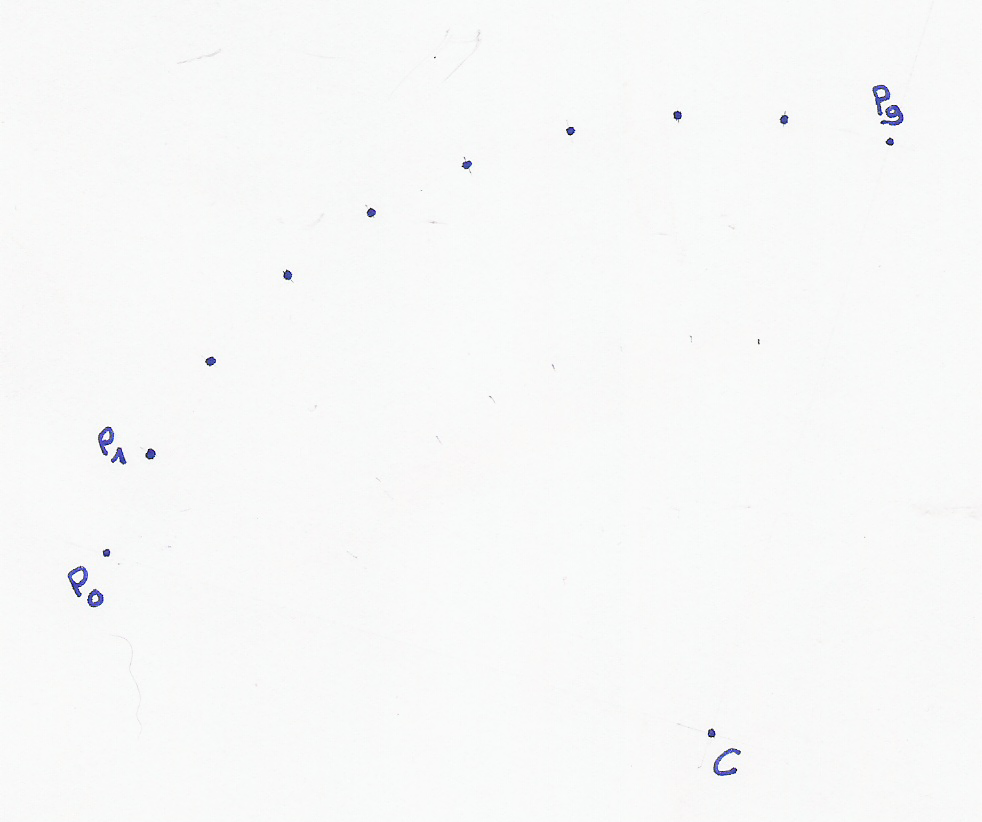 P9
P1
P0
C